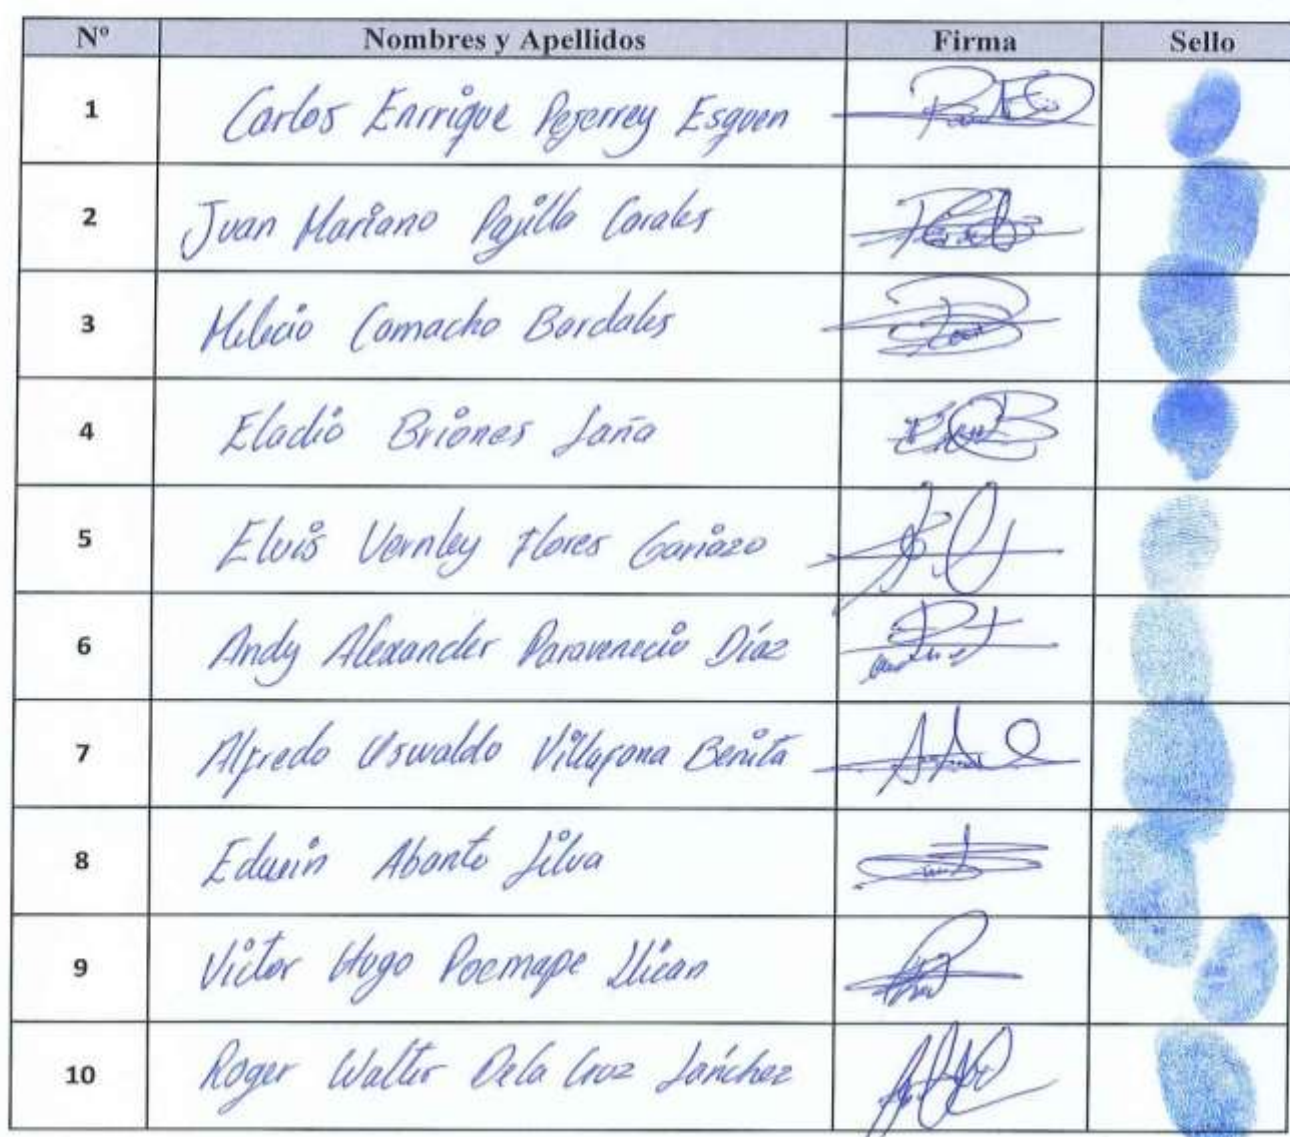 Nº Nombres y Apellidos Firma Sello
1 Carlos Enrrique Pejerrey Esquen
2 Juan Mariano Pajilla Corales
3 Melecio Camacho Bardales
4 Eladio Briones Saña
5 Elvis Vernley Flores Gariazo
6 Andy Alexander Paravenecio Díaz
7 Alfredo Uswaldo Villafana Benita
8 Edwin Abanto Silva
9 Victor Hugo Poemape Llican
10 Roger Walter Dela Cruz Sánchez